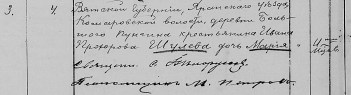 3. 4. Вятской Губернии, Яранского уѣзда,
Комаровской волости, деревни Боль-
шого Пунгина крестьянина Ивана
Прохорова Шулева дочь Мария
Священ. С.
Псаломщик М. Петров